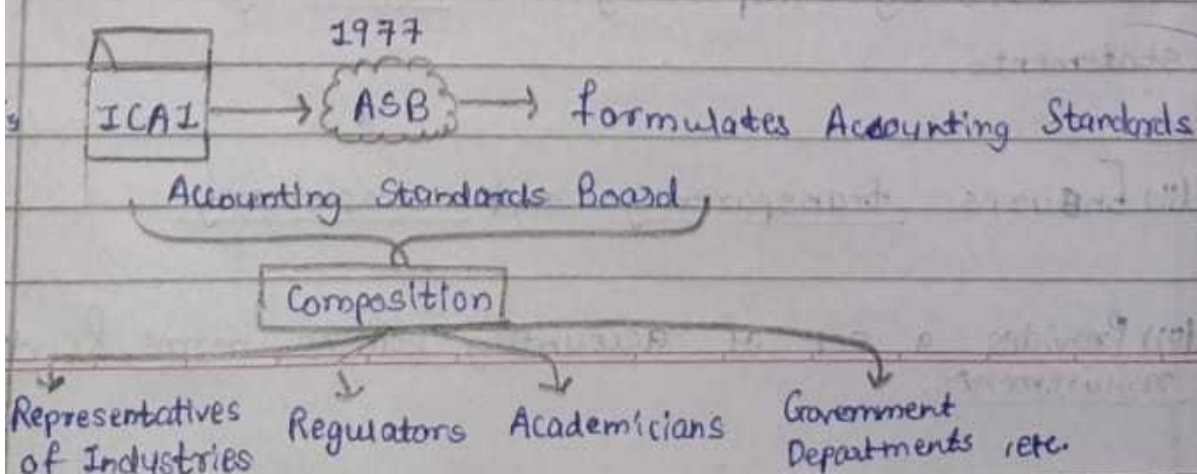 1977
ICAI → ASB → formulates Accounting Standards
Accounting Standards Board
Composition
Representatives of Industries
Regulators
Academicians
Government Departments, etc.